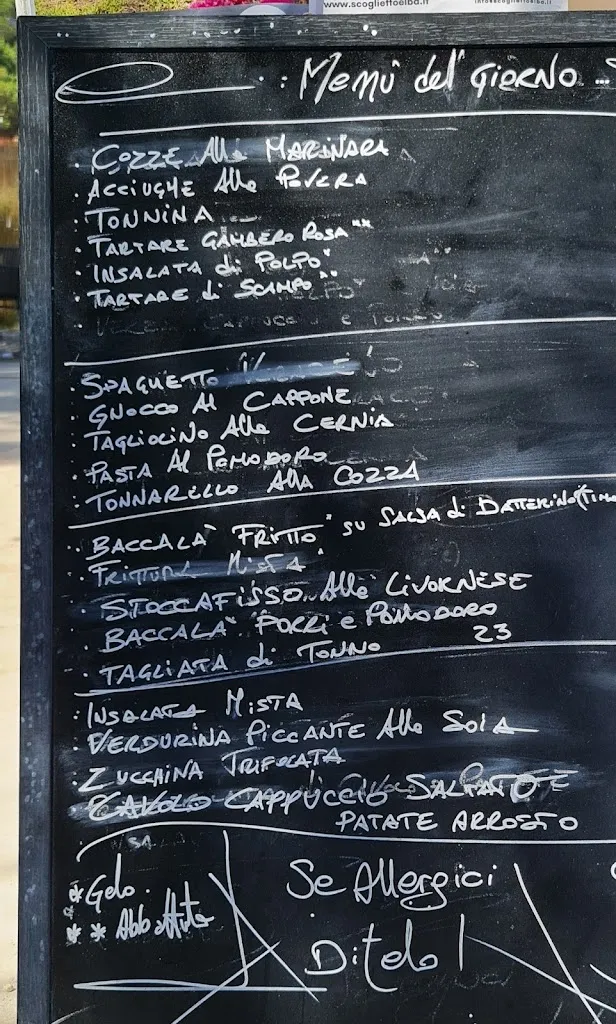 www.scogliettoelba.it
Menù del Giorno ...
· Cozze Alla Marinara
· Acciughe Alla Povera
· Tonnina
· Tartare Gambero Rosa **
· Insalata di Polpo *
· Tartare di Scampo **
· Spaguetto
· Gnocco Al Cappone
· Tagliolino Alla Cernia
· Pasta Al Pomodoro
· Tonnarello Alla Cozza
· Baccalà Fritto * su Salsa di Datterino
· Frittura Mista *
· Stoccafisso Alla Livornese
· Baccalà Porri e Pomodoro
· Tagliata di Tonno 23
· Insalata Mista
· Verdurina Piccante Alla Soia
· Zucchina Trifolata
· Cavolo Cappuccio Saltato e
Patate Arrosto
* Gelo.
* * Abbattuto
Se Allergici
Ditelo!